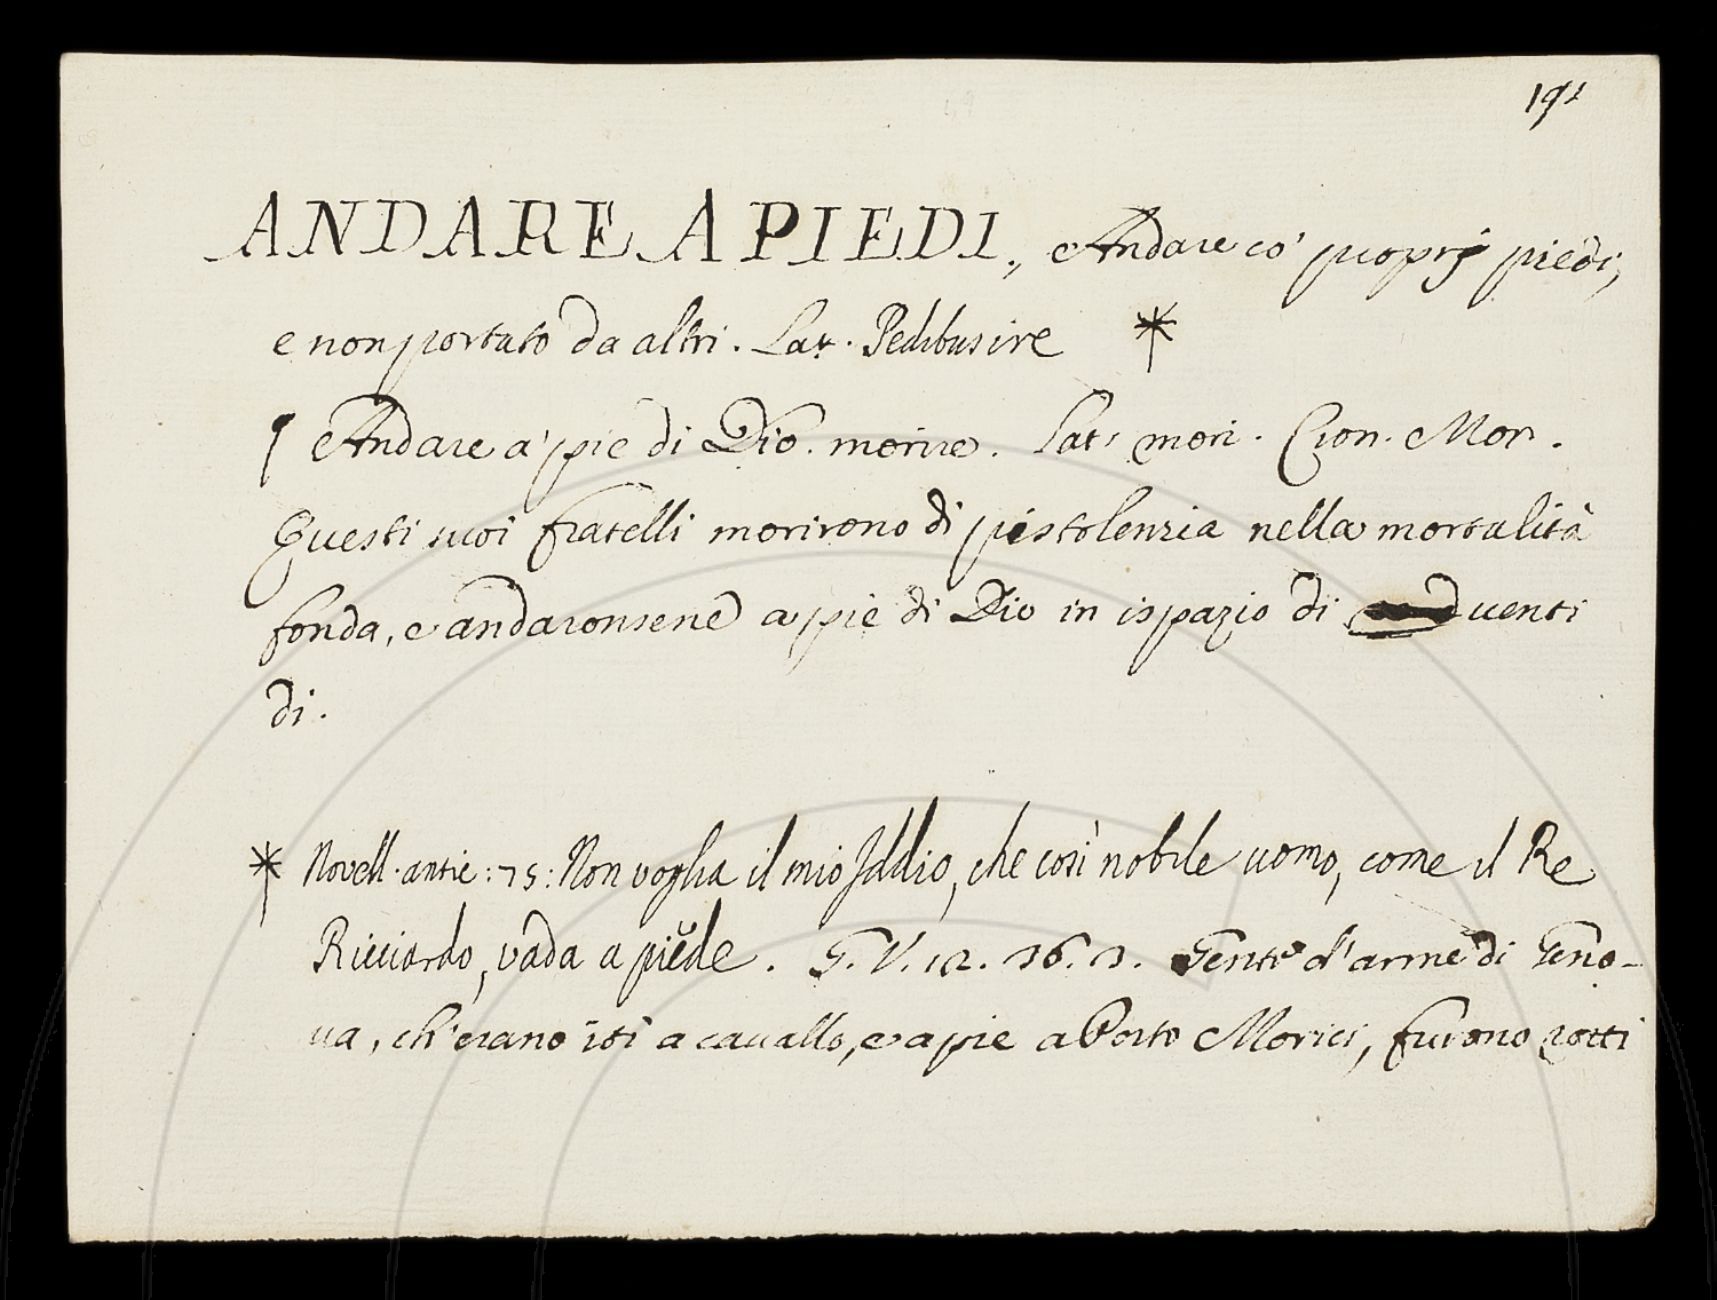 191
ANDARE A PIEDI., Andare co' proprj piedi,
e non portato da altri. Lat. Pedibus ire *
¶ Andare a' pie di Dio. morire. Lat. mori. Cron. Mor.
Questi suoi fratelli morirono di pistolenzia nella mortalità
fonda, e andaronsene a pie di Dio in ispazio di venti
di.
* Novell. antic: 75: Non voglia il mio Iddio, che così nobile uomo, come il Re
Ricciardo, vada a piede. G. V. 12. 36. 3. Gente d'arme di Geno-
va, ch'erano iti a cavallo, e a pie a Porto Morici, furono rotti